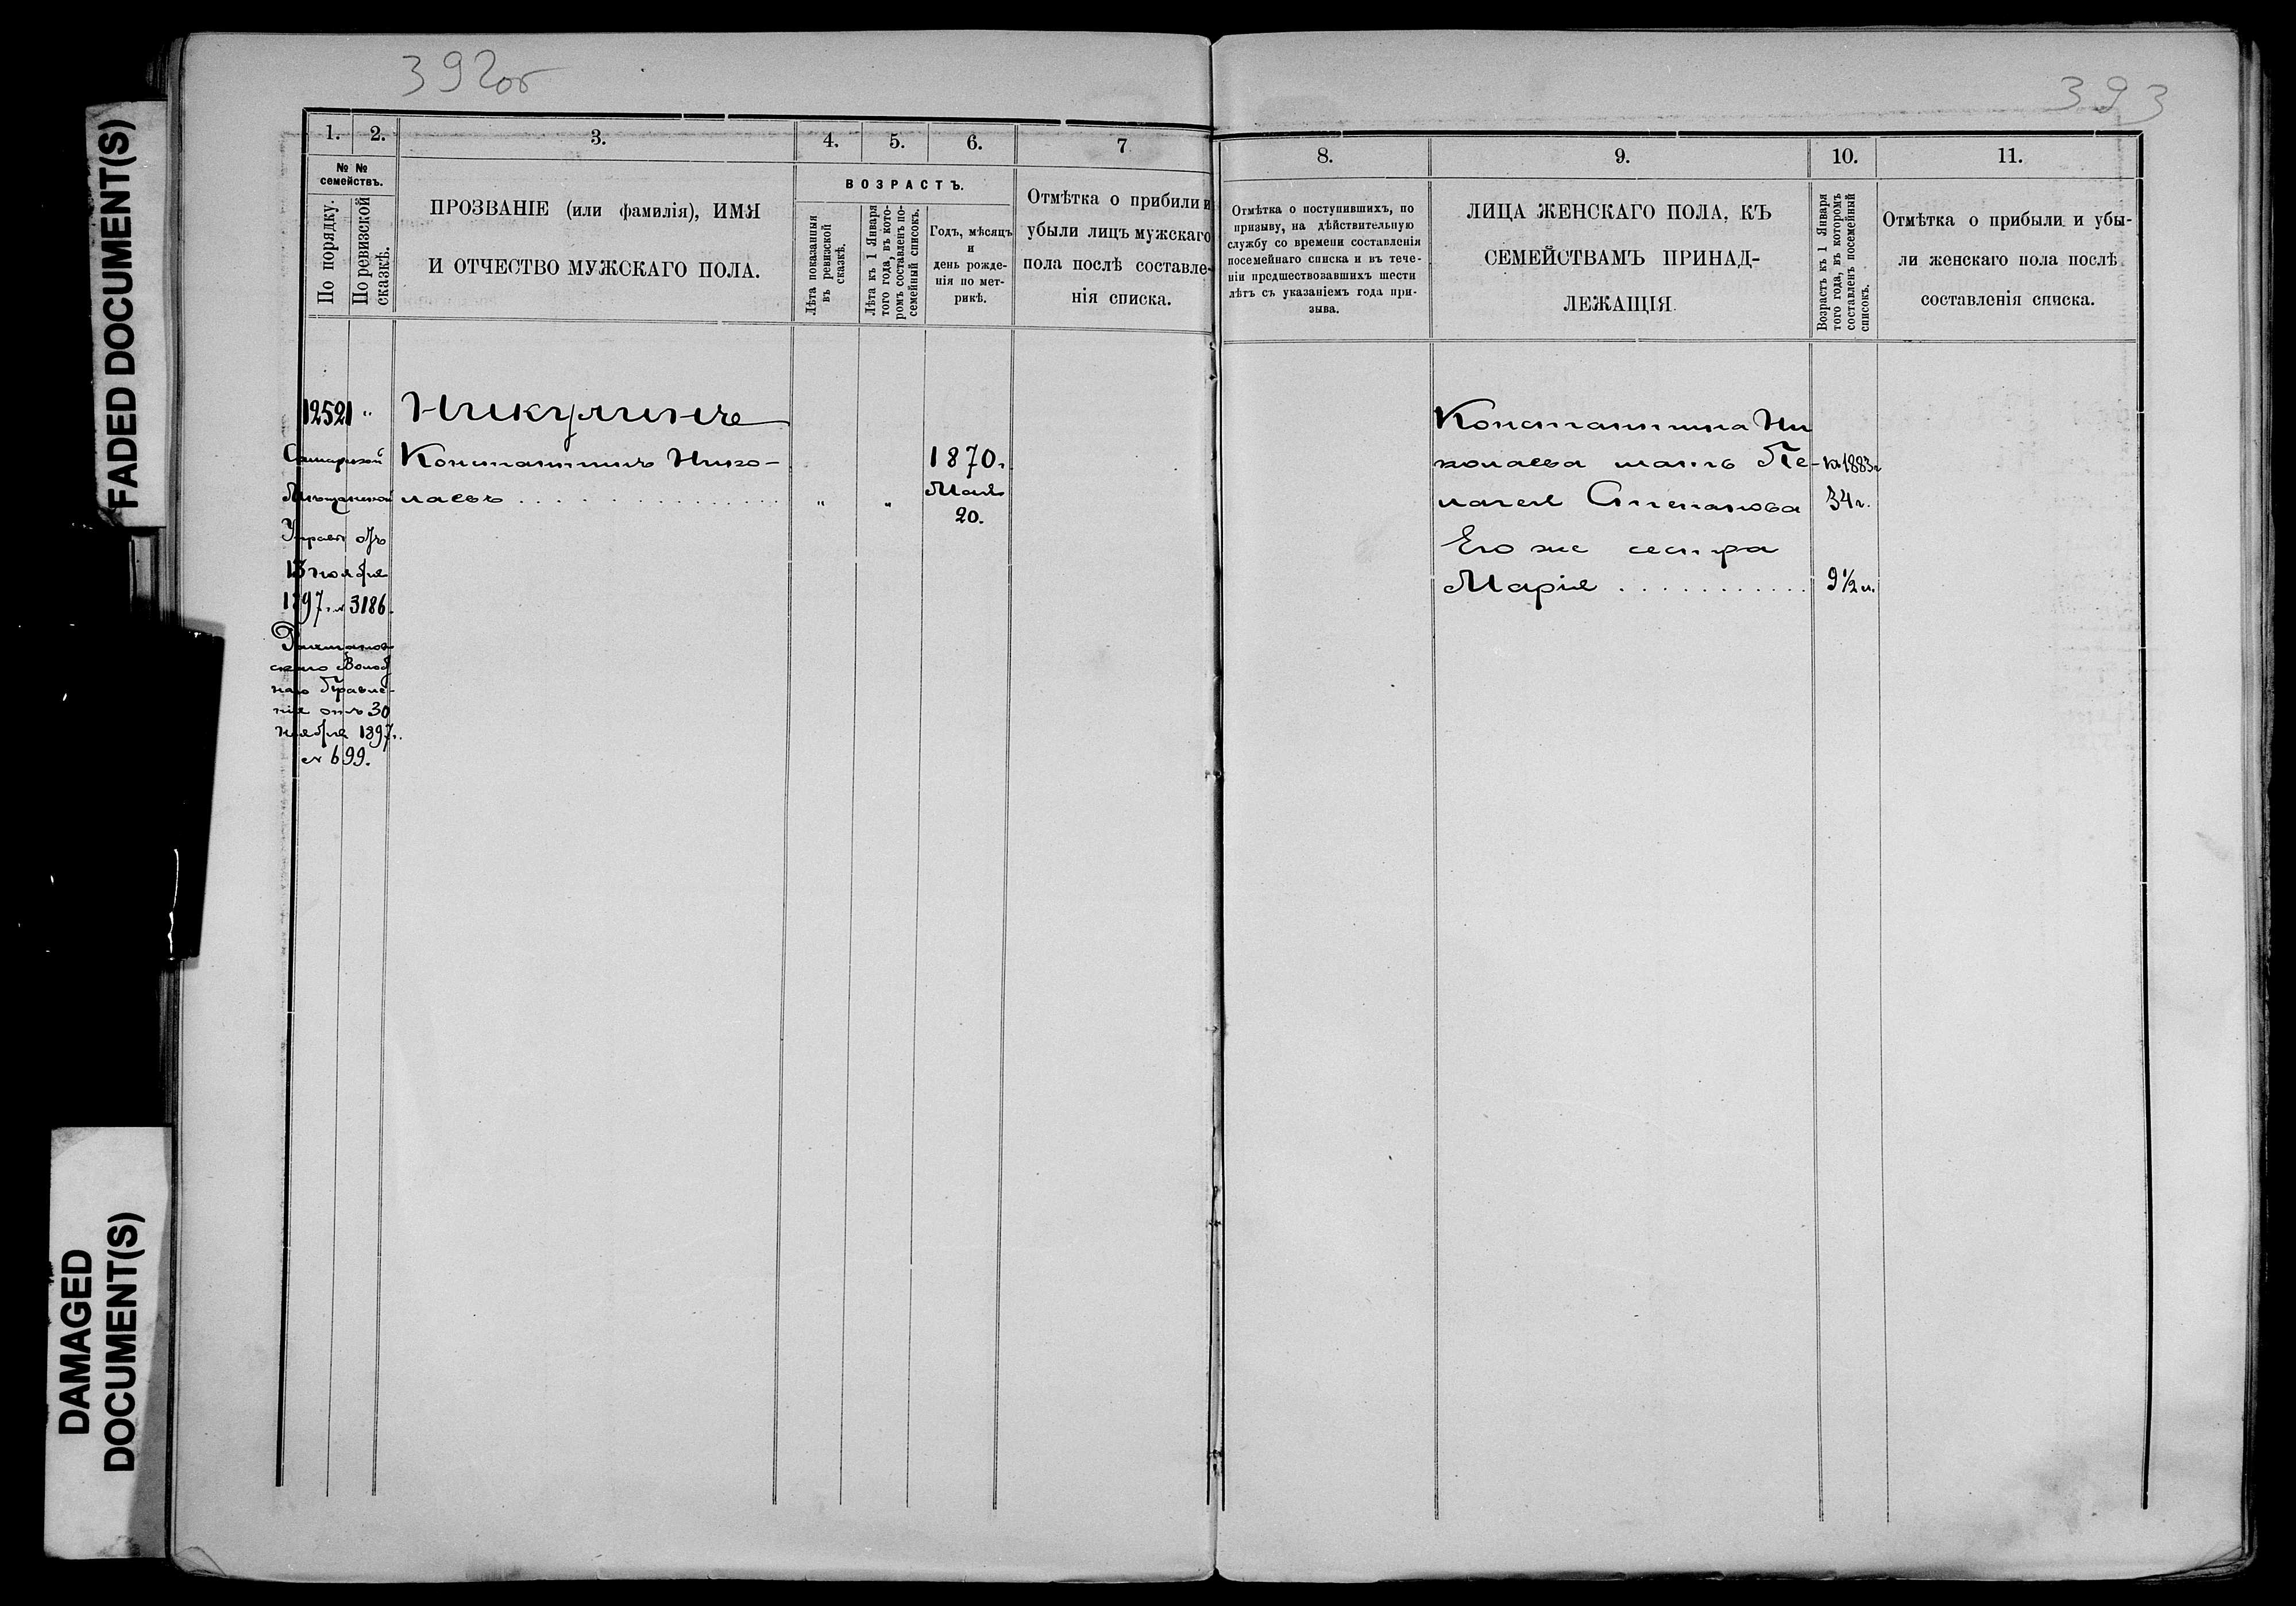 FADED DOCUMENT(S)
DAMAGED
DOCUMENT(S)
392об
1. 2. 3. 4. 5. 6. 7
№ №
семействъ.
По порядку.
По ревизской
сказкѣ.
ПРОЗВАНІЕ (или фамилія), ИМЯ
И ОТЧЕСТВО МУЖСКАГО ПОЛА.
ВОЗРАСТЪ.
Лѣта показанныя
въ ревизской
сказкѣ.
Лѣта къ 1 Января
того года, въ кото-
ромъ составленъ по-
семейный списокъ.
Годъ, мѣсяцъ
и
день рожде-
нія по мет-
рикѣ.
Отмѣтка о прибыли и
убыли лицъ мужскаго
пола послѣ составле-
нія списка.
12521 "
Самарской
Мѣщанской
Управы отъ
13 ноября
1897 г. № 3186.
скаго Волост
наго Правле-
нія отъ 30
Ноября 1897 г.
№ 699.
Никулинъ
Константинъ Нико-
лаевъ . . . . . . . . . . . . . . " "
1870 г.
Мая
20.
393
8. 9. 10. 11.
Отмѣтка о поступившихъ, по
призыву, на дѣйствительную
службу со времени составленія
посемейнаго списка и въ тече-
ніи предшествовавшихъ шести
лѣтъ съ указаніемъ года при-
зыва.
ЛИЦА ЖЕНСКАГО ПОЛА, КЪ
СЕМЕЙСТВАМЪ ПРИНАД-
ЛЕЖАЩІЯ.
Возрастъ къ 1 Января
того года, въ которомъ
составленъ посемейный
списокъ.
Отмѣтка о прибыли и убы-
ли женскаго пола послѣ
составленія списка.
Константина Ни
колаева мать Пе- къ 1883 г
лагея Степанова 34 г.
Его же сестра
Марія . . . . . . . . . . . 9½ л.